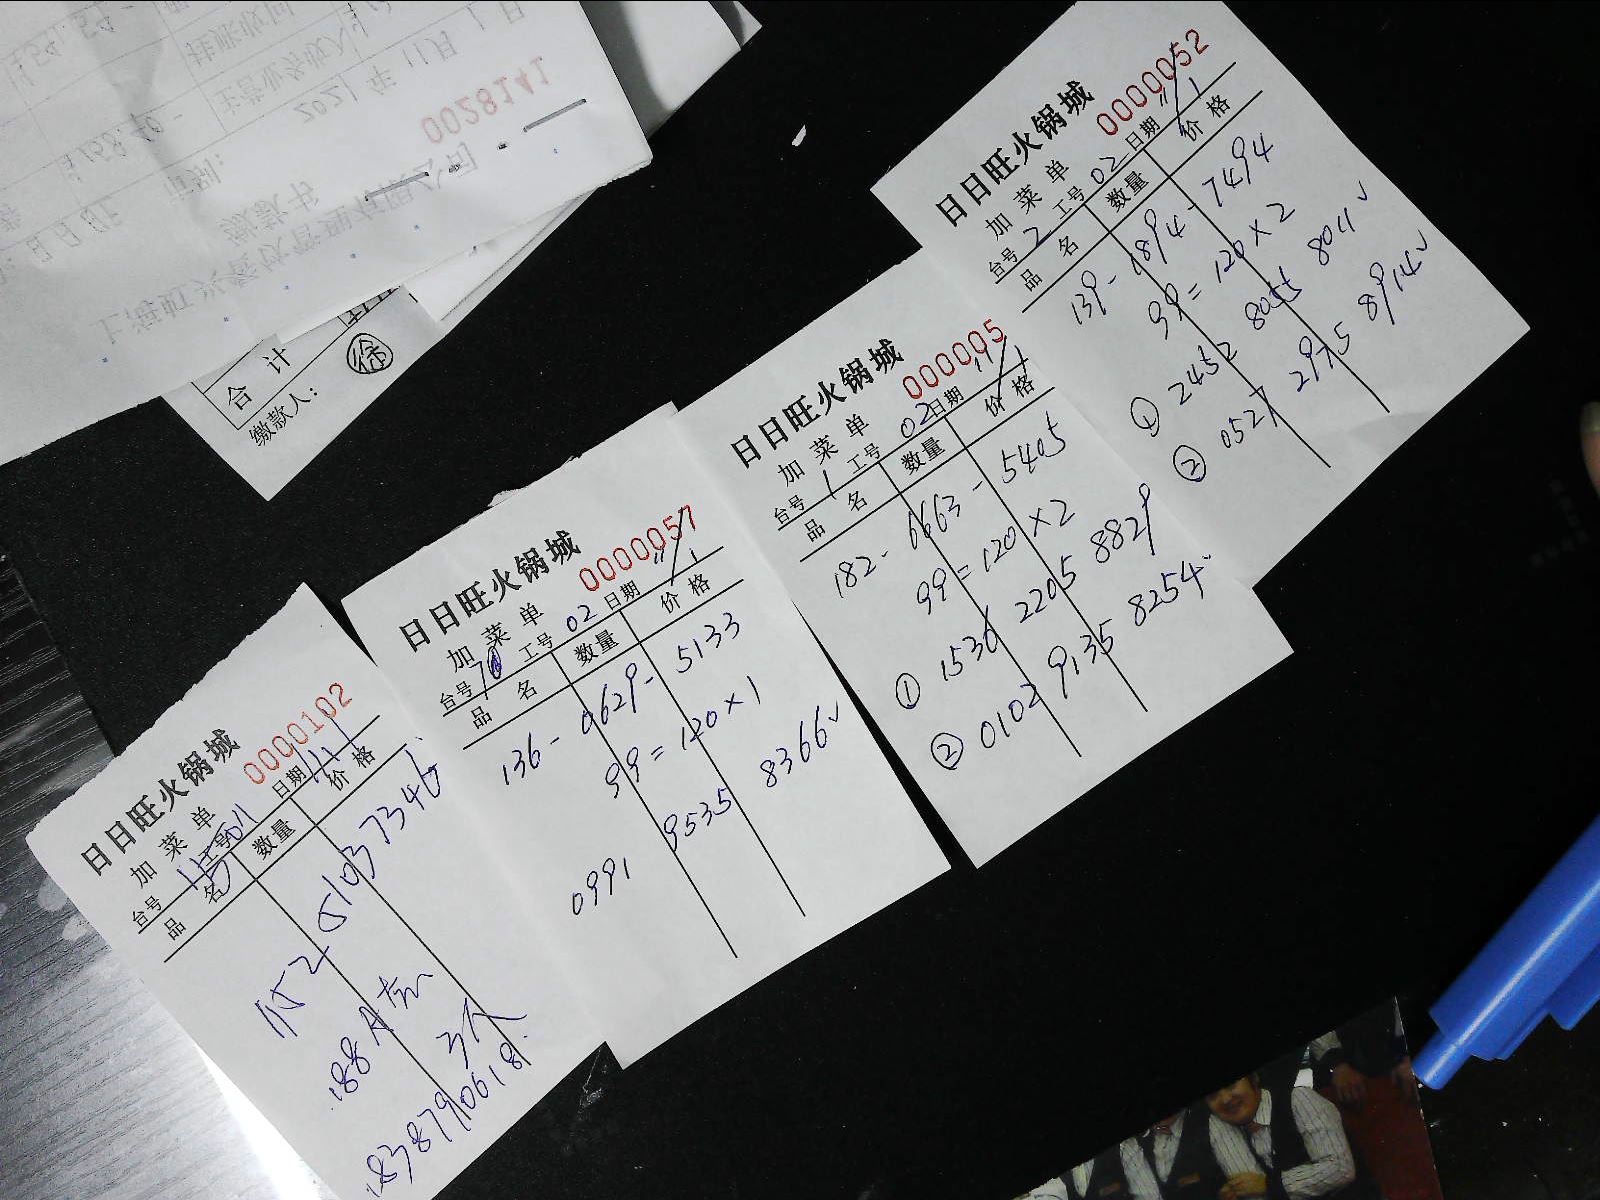 0028141
2021年11月1日
合计
缴款人:
徐
日日旺火锅城
加菜单
0000102
台号 工号011 日期11/1
品名 数量 价格
152 5103 7346
188A套
3人
18387906181
日日旺火锅城
加菜单
0000057
台号 工号02 日期11/1
品名 数量 价格
136-0629-5133
99=120×1
0991 9535 8366✓
日日旺火锅城
加菜单
000005
台号1 工号02 日期11/1
品名 数量 价格
182-6663-5405
99=120×2
① 1536 2205 8829
② 0102 9135 8254
日日旺火锅城
加菜单
0000052
台号2 工号02 日期11/1
品名 数量 价格
139-1894-7494
99=120×2
① 2452 8055 8041✓
② 0527 2975 8914✓